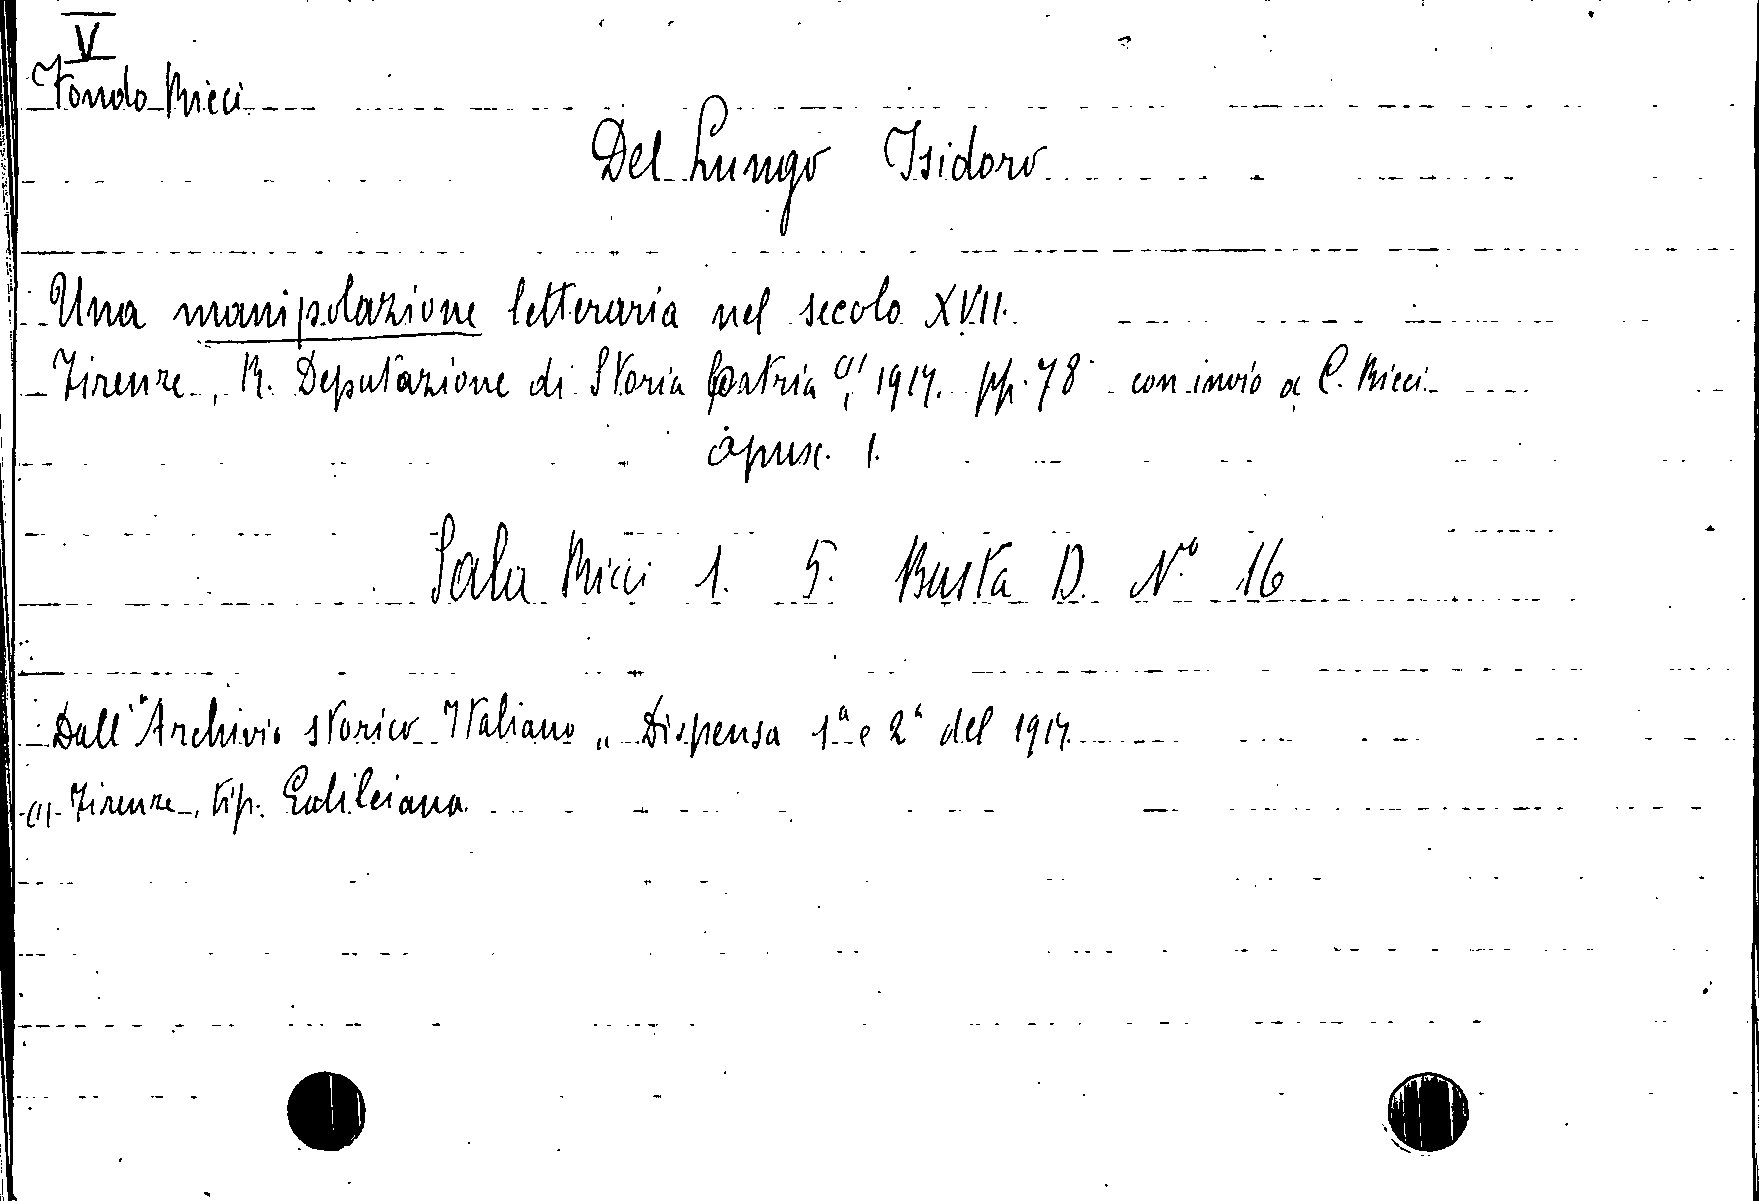 V
Fondo Ricci
Del Lungo Isidoro
Una manipolazione letteraria nel secolo XVII.
Firenze, R. Deputazione di Storia Patria (1), 1917. pp. 78 con invio a C. Ricci
opusc. 1.
Sala Ricci 1. 5. Busta D. N.° 16
Dall'"Archivio storico Italiano„ Dispensa 1ª e 2ª del 1917
(1) Firenze, tip. Galileiana